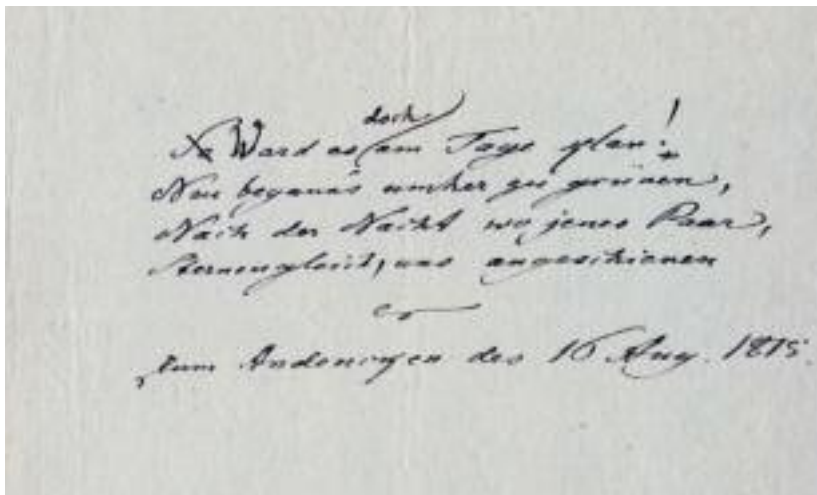 Ward es doch am Tage klar!
Neu begann's umher zu grünen,
Nach der Nacht wo jenes Paar,
Sternengleich, uns angeschienen
Zum Andencken des 16 Aug. 1815.